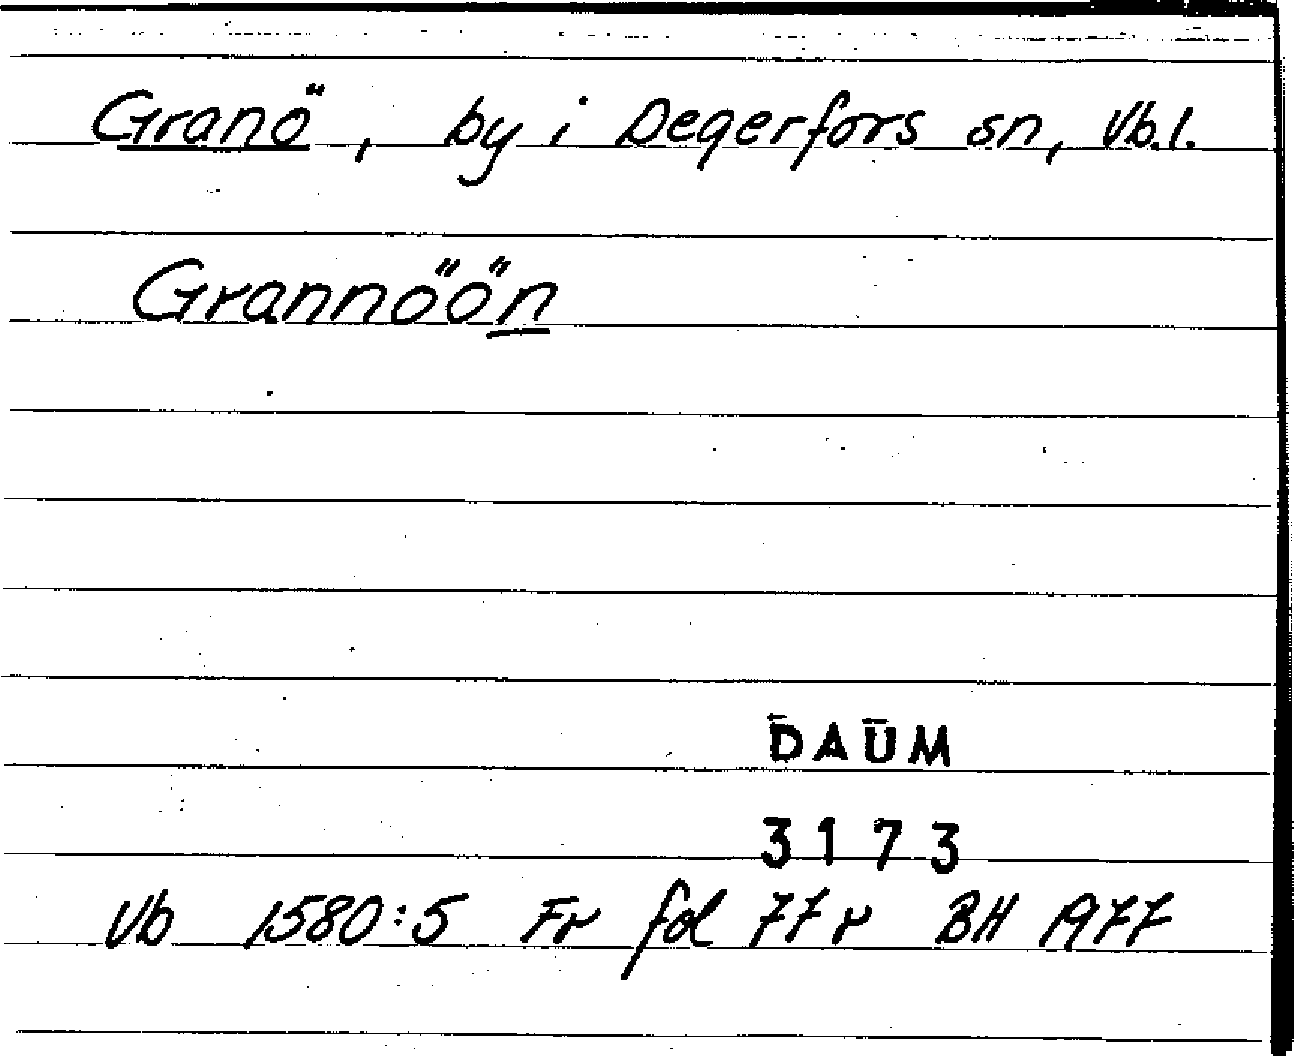 Granö, by i Degerfors sn, Vb.l.
Grannöön
DAUM
3173
Vb 1580:5 Fr fol 77 r BH 1977